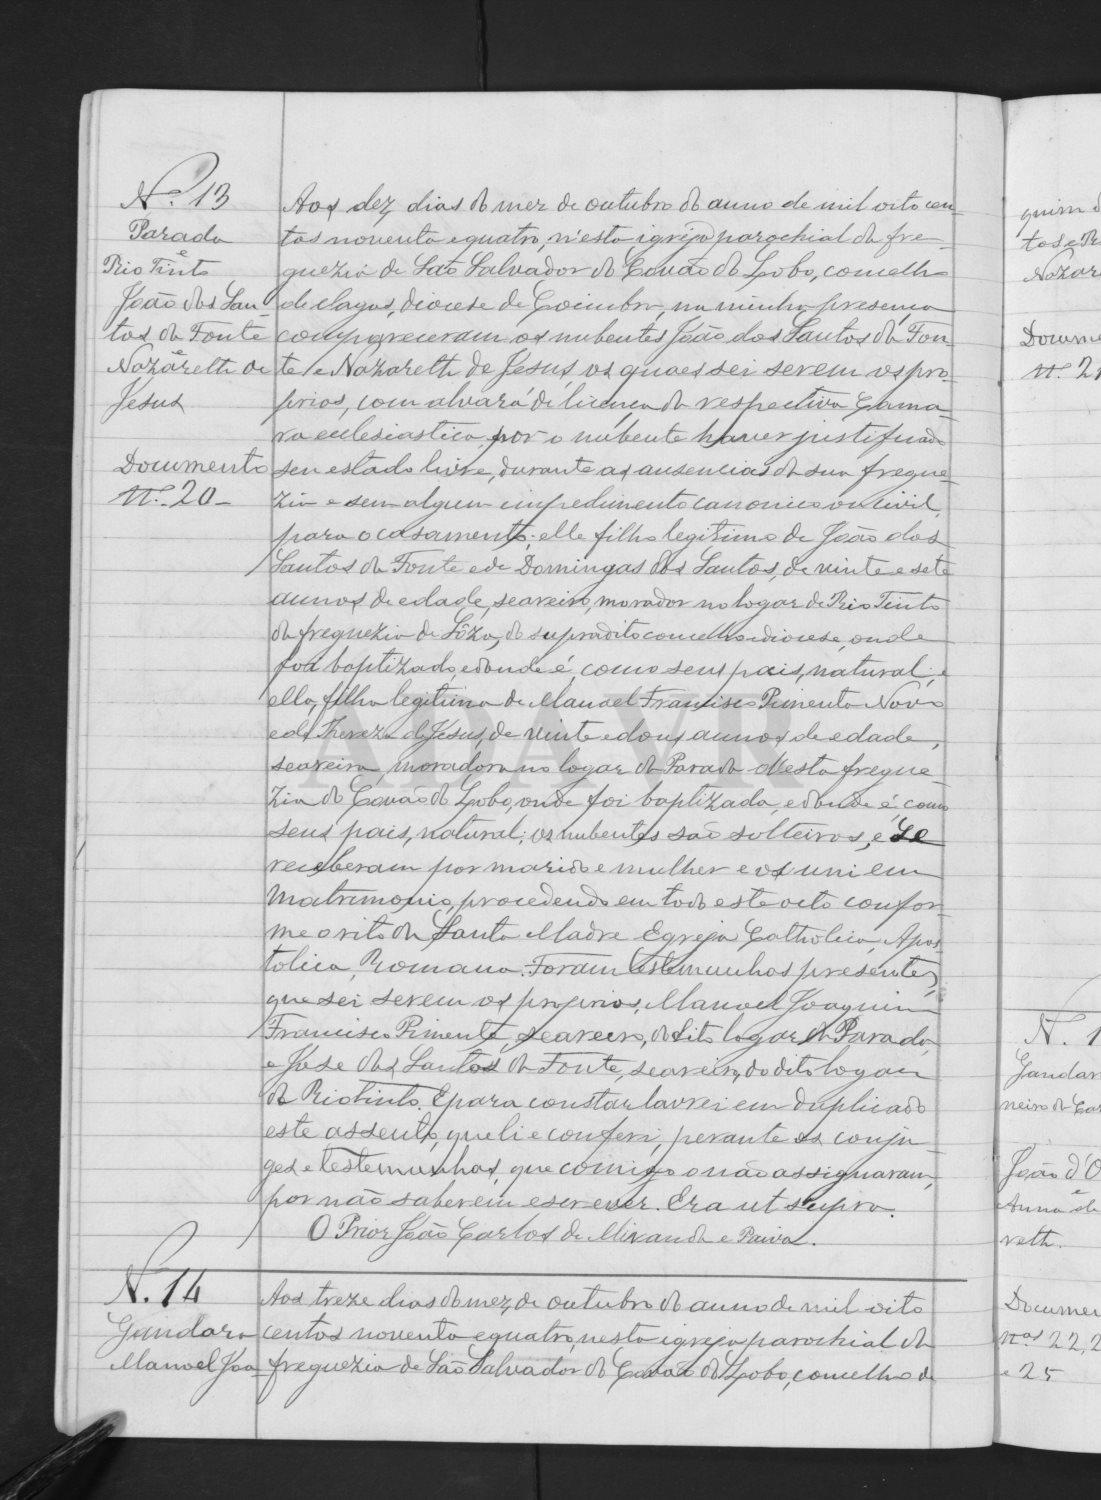 N.º 13
Parada
e
Rio Tinto
João dos San-
tos da Fonte
e
Nazareth de
Jesus
Documento
N.º 20_
Aos dez dias do mez de outubro do anno de mil oito cen-
tos noventa e quatro, n'esta igreja parochial da fre-
guezia de São Salvador do Covão do Lobo, concelho
de Vagos, diocese de Coimbra, na minha presença
compareceram os nubentes João dos Santos da Fon-
te e Nazareth de Jesus, os quaes sei serem os pro-
prios, com alvará de licença da respectiva Cama-
ra ecclesiastica por o nubente haver justificado
seu estado livre, durante as ausencias da sua fregue-
zia e sem algum impedimento canonico ou civil,
para o casamento; elle filho legitimo de João dos
Santos da Fonte e de Domingas dos Santos, de vinte e sete
annos de edade, seareiro, morador no logar de Rio Tinto
da freguezia de Sôza, do supradito concelho e diocese, onde
foi baptizado, e donde é, como seus pais, natural; e
ella, filha legitima de Manoel Francisco Pimenta Novo
e de Thereza de Jesus, de vinte e dous annos de edade,
seareira, moradora no logar da Parada d'esta fregue-
zia do Covão do Lobo, onde foi baptizada, e donde é, como
seus pais, natural; os nubentes são solteiros, e se
receberam por marido e mulher e os uni em
Matrimonio, procedendo em todo este acto confor-
me o rito da Santa Madre Egreja Catholica, Apos-
tolica, Romana. Foram testemunhas presentes,
que sei serem os proprios, Manoel Joaquim
Francisco Pimenta, seareiro, do dito logar da Parada,
e Jose dos Santos da Fonte, seareiro, do dito logar
do Riotinto. E para constar lavrei em duplicado
este assento, que li e conferi, perante os conju-
ges e testemunhas, que comigo o não assignaram,
por não saberem escrever. Era ut supra.
O Prior João Carlos de Miranda e Paiva.
N. 14
Gandara
Manoel Joa-
Aos treze dias do mez de outubro do anno de mil oito
centos noventa e quatro, nesta igreja parochial da
freguezia de São Salvador do Covão do Lobo, concelho de
quim d
tos e R
Nazar
Docume
N.º 21
N. 1
Gandar
neiro da Car
João d'O
e
Anna de
reth.
Documen
N.os 22, 2
e 25
ADAVR